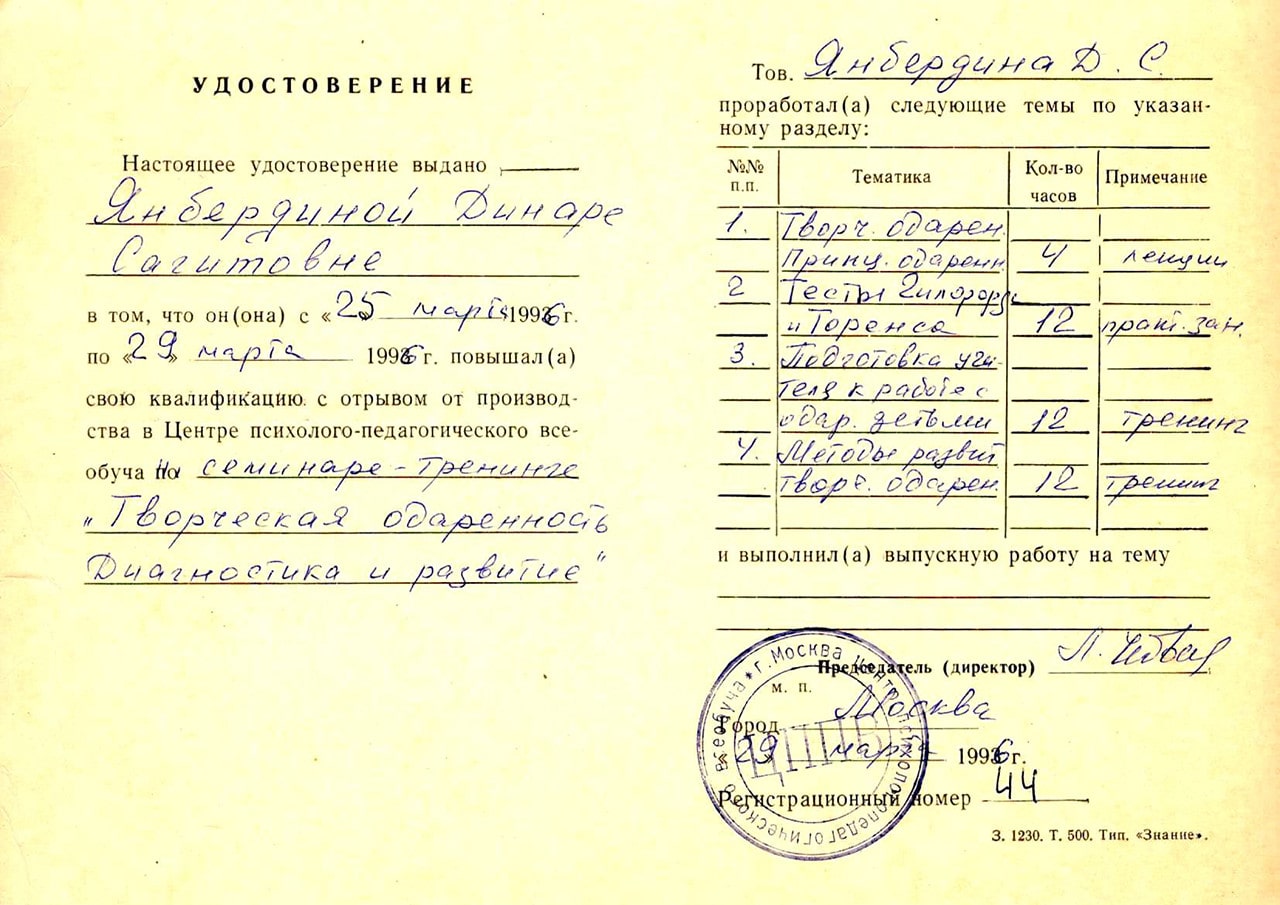 УДОСТОВЕРЕНИЕ
Настоящее удостоверение выдано
Янбердиной Динаре
Сагитовне
в том, что он(она) с «25» марта 1996 г.
по «29» марта 1996 г. повышал(а)
свою квалификацию с отрывом от производ-
ства в Центре психолого-педагогического все-
обуча на семинаре-тренинге
„Творческая одаренность
Диагностика и развитие"
Тов. Янбердина Д. С.
проработал(а) следующие темы по указан-
ному разделу:
№№ п.п. Тематика Кол-во часов Примечание
1. Творч. одарен.
Принц. одаренн. 4 лекции
2 Тесты Гилфорда
и Торенса 12 практ. зан.
3. Подготовка учи-
теля к работе с
одар. детьми 12 тренинг
4. Методы развит
творч. одарен. 12 тренинг
и выполнил(а) выпускную работу на тему
Председатель (директор)
м. п.
Город Москва
«29» марта 1996 г.
Регистрационный номер 44
З. 1230. Т. 500. Тип. «Знание».
г. Москва Центр психолого-педагогического всеобуча
ЦППВ